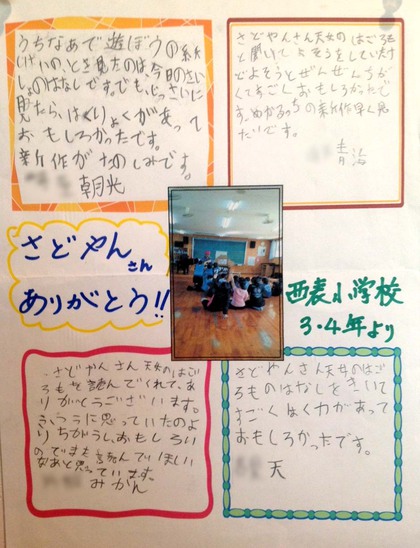 うちなあで遊ぼうの系
けいの、とき見たのは、今日のさいし
ょのはなしです。でも、じっさいに
見たら、はくりょくがあって
おもしろかったです。
新作がたのしみです。
朝光
さどやんさん天女のはごろも
と聞いて
どよそうとぜんぜんちが
くてすごくおもしろかったで
す。
の新作早く見
たいです。
青海
さどやん
さん
ありがとう!!
西表小学校
3・4年より
さどやんさん天女のはご
ろもを読んでくれて、あ
りがとうございます。
ふつうに思っていたのよ
りちがうし、おもしろい
のでまた読んでほしい
なあと思っています。
みかん
さどやんさん天女のはご
ろものはなしをきいて
すごくはく力があって
おもしろかったです。
天